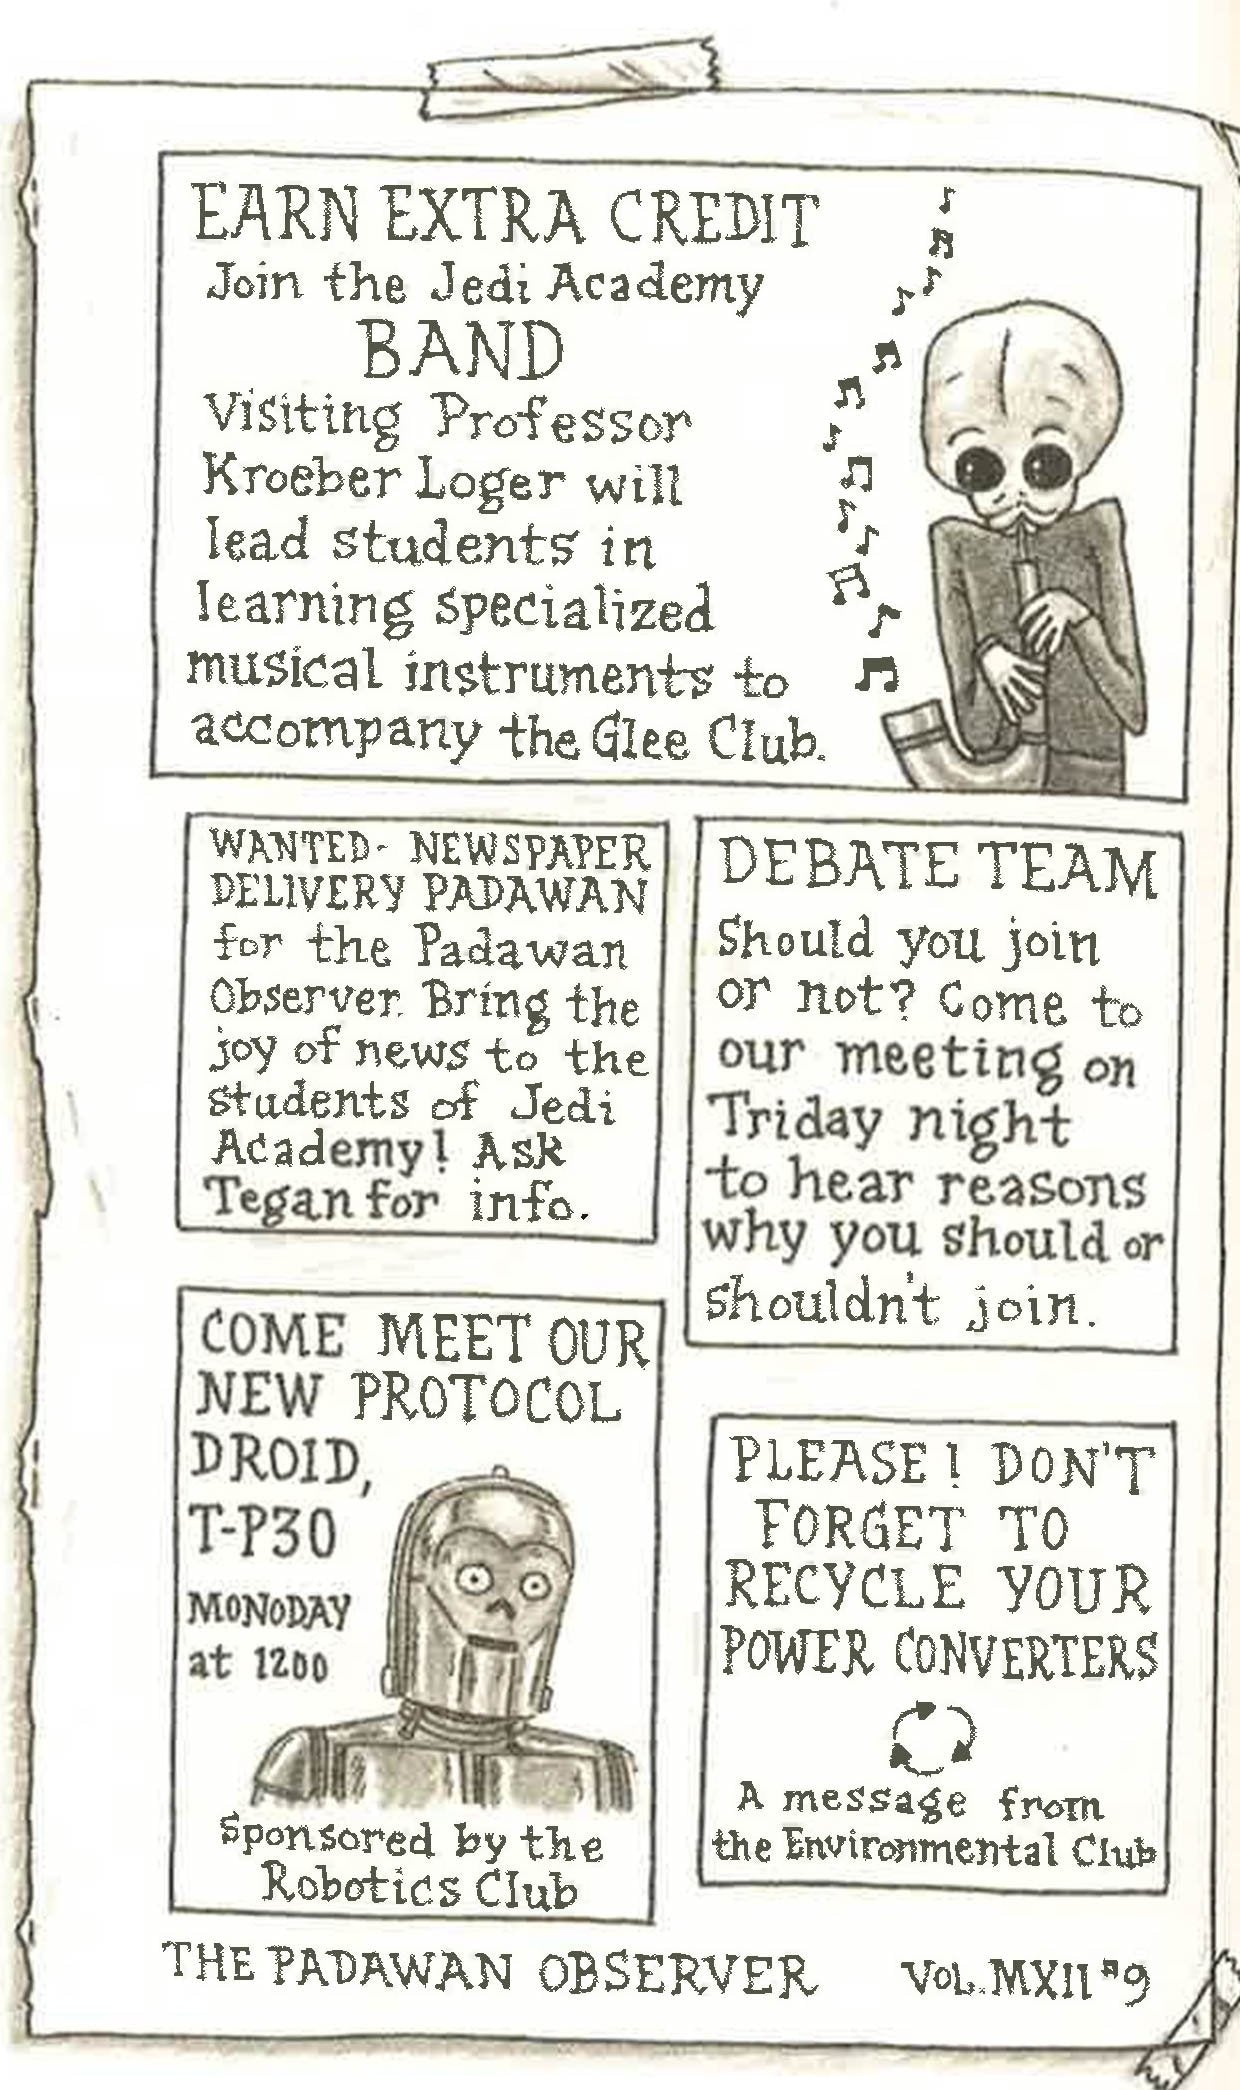 EARN EXTRA CREDIT
Join the Jedi Academy
BAND
Visiting Professor
Kroeber Loger will
lead students in
learning specialized
musical instruments to
accompany the Glee Club.
WANTED- NEWSPAPER
DELIVERY PADAWAN
for the Padawan
Observer. Bring the
joy of news to the
students of Jedi
Academy! Ask
Tegan for info.
DEBATE TEAM
Should you join
or not? Come to
our meeting on
Triday night
to hear reasons
why you should or
shouldn't join.
COME MEET OUR
NEW PROTOCOL
DROID,
T-P30
MONODAY
at 1200
Sponsored by the
Robotics Club
PLEASE! DON'T
FORGET TO
RECYCLE YOUR
POWER CONVERTERS
A message from
the Environmental Club
THE PADAWAN OBSERVER VOL. MXII #9